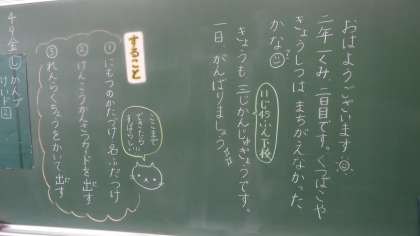 おはようございます
二年一くみ 二日目です。くつばこや
きょうしつは まちがえなかった
かな
きょうも 三じかんじゅぎょうです。
一日、がんばりましょう。
すること
①にもつのかたづけ、名ふだつけ
②けんこうかんさつカードを出す
③れんらくちょうをかいて出す
ここまで
できたら
すばらしい!